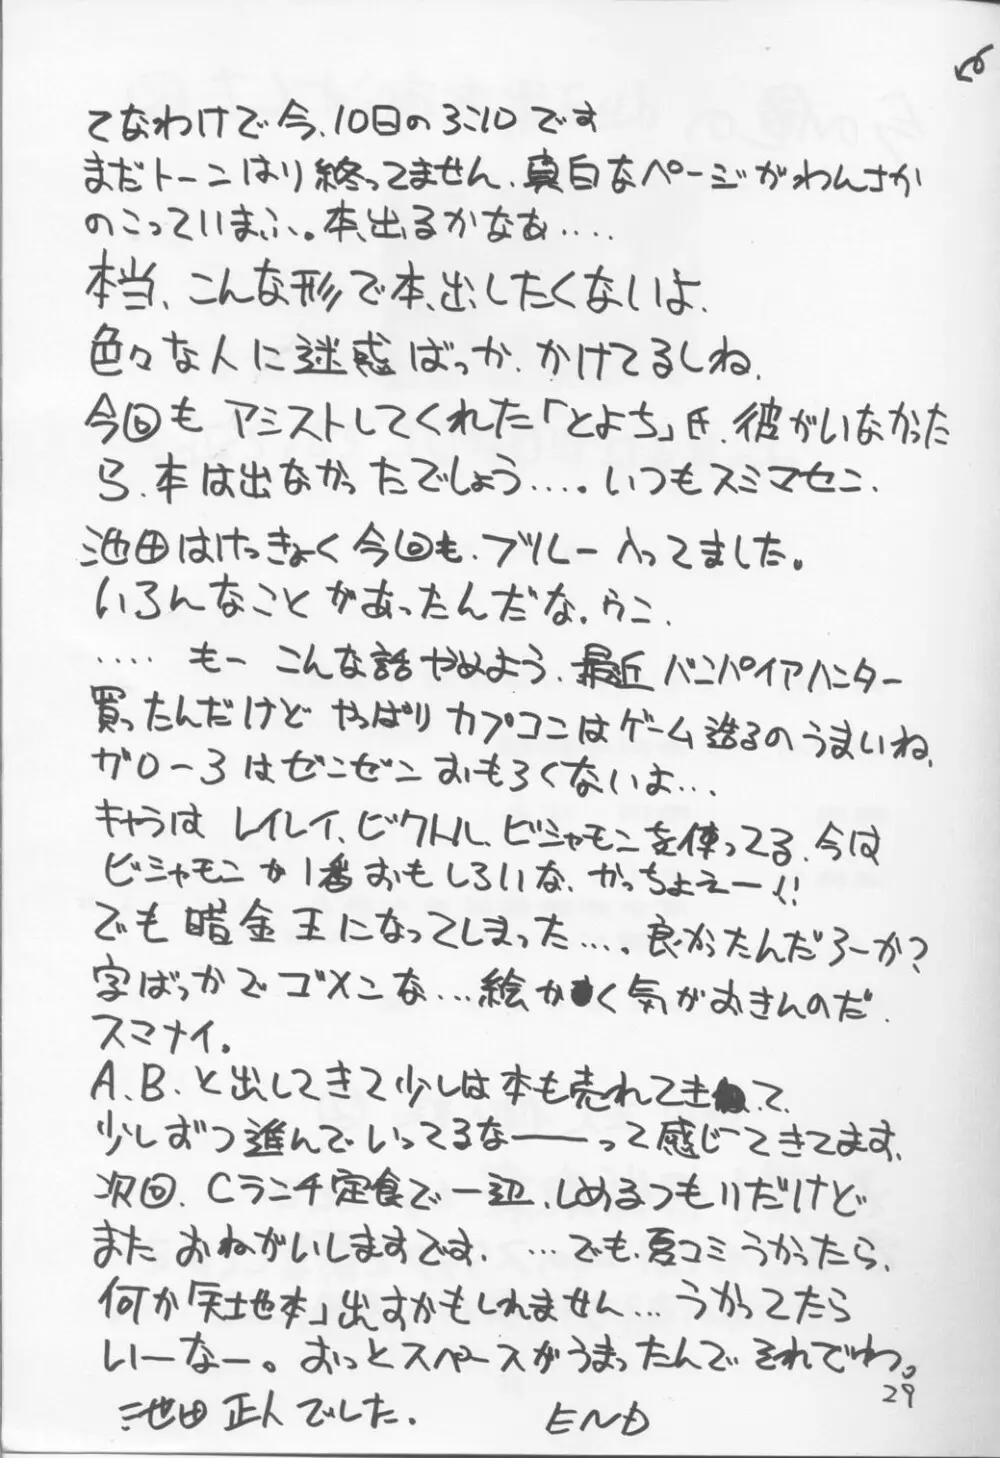 てなわけで今、10日の3:10です
まだトーンはり終ってません、真白なページがわんさか
のこっていまふ。本、出るかなぁ‥‥
本当、こんな形で本、出したくないよ、
色々な人に迷惑ばっか、かけてるしね、
今回もアシストしてくれた「とよち」氏、彼がいなかった
ら、本は出なかったでしょう‥‥。いつもスミマセン、
池田はけっきょく今回も、ブルー入ってました。
いろんなことがあったんだな、ウン、
‥‥もーこんな話やめよう、最近バンパイアハンター
買ったんだけどやっぱりカプコンはゲーム造るのうまいね、
ガロー3はゼンゼンおもろくないよ…
キャラはレイレイ、ビクトル、ビシャモンを使ってる、今は
ビシャモンが1番おもしろいな、かっちょえー!!
でも暗金王になってしまった‥‥。良かったんだろーか?
字ばっかでゴメンな…絵かく気がおきんのだ、
スマナイ。
A、B、と出してきて少しは本も売れてきて、
少しずつ進んでいってるなーーって感じてきてます、
次回、Cランチ定食で一辺、しめるつもりだけど
またおねがいしますです、…でも、夏コミうかったら、
何か「天地本」出すかもしれません…うかってたら
いーなー。おっとスペースがうまったんでそれでわ。
29
池田正人でした。 END